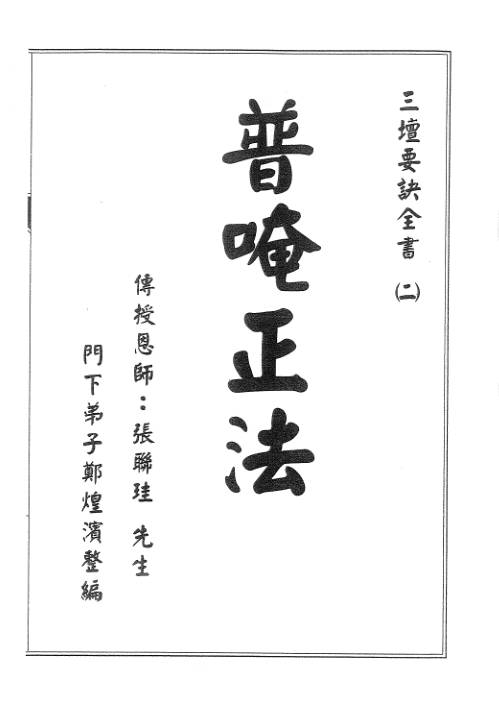 三壇要訣全書 ㈡
普唵正法
傳授恩師：張聯珪 先生
門下弟子鄭煌濱整編